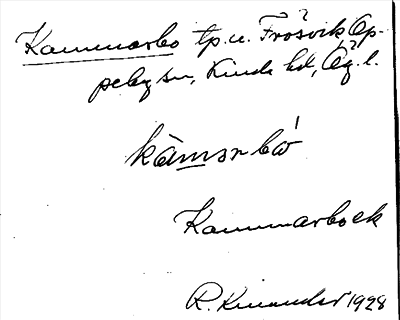 Kammarbo tp. u. Frösvik, Op-
peby sn, Kinda hd, Ög. l.
kàmarbó
Kammarboek
R. Kinander 1928